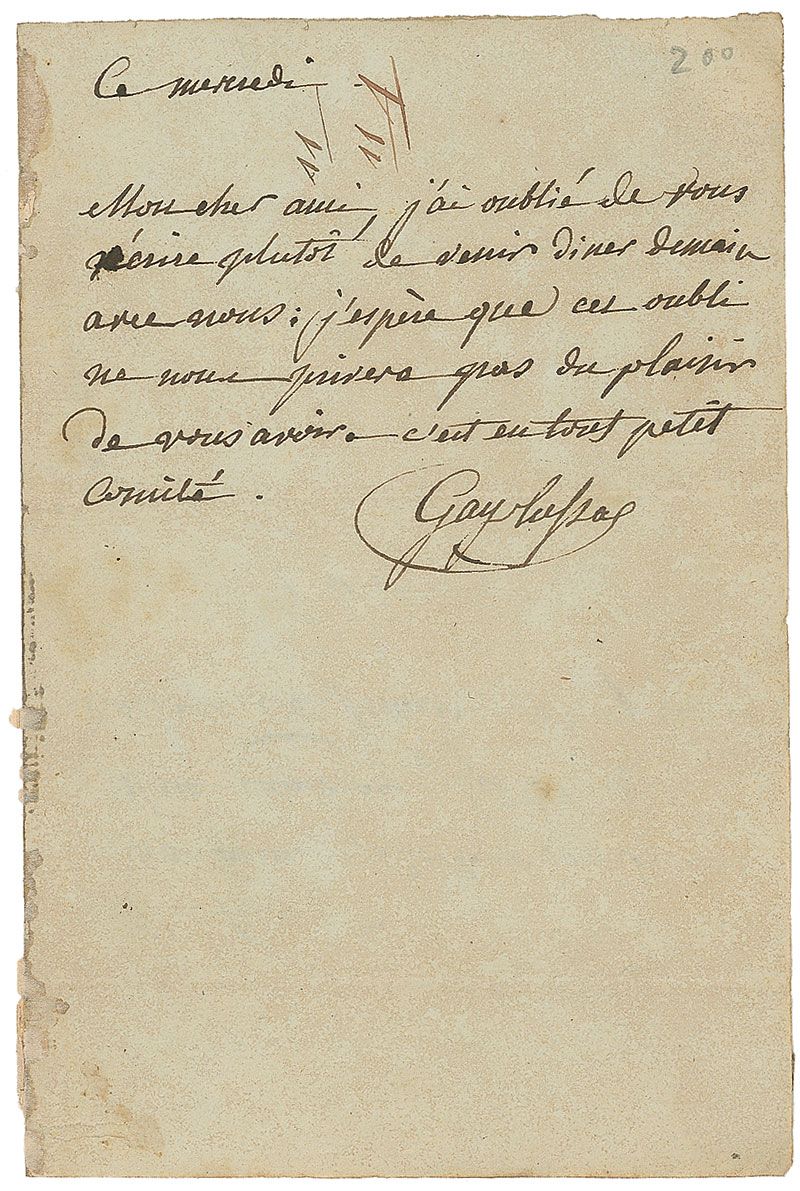 200
Ce mercredi
Mon cher ami, j'ai oublié de vous
écrire plutôt de venir diner demain
avec nous; j'espère que cet oubli
ne nous privera pas du plaisir
de vous avoir. c'est en tout petit
Comité.
Gay Lussac